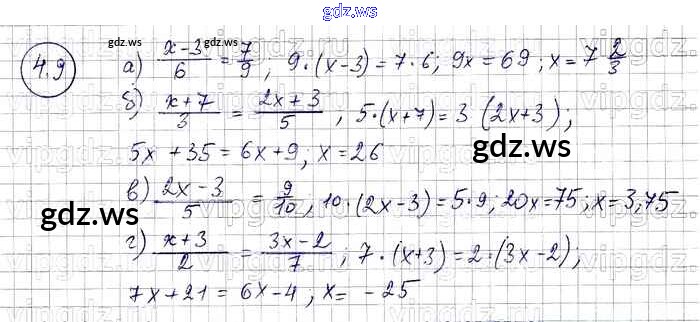 gdz.ws
4.9
а) x-3/6 = 7/9; 9·(x-3)=7·6; 9x=69; x=7 2/3
б) x+7/3 = 2x+3/5, 5·(x+7)=3(2x+3);
5x+35=6x+9, x=26
в) 2x-3/5 = 9/10, 10·(2x-3)=5·9; 20x=75; x=3,75
г) x+3/2 = 3x-2/7; 7·(x+3)=2·(3x-2);
7x+21=6x-4; x=-25
gdz.ws
gdz.ws
gdz.ws
gdz.ws
gdz.ws
gdz.ws